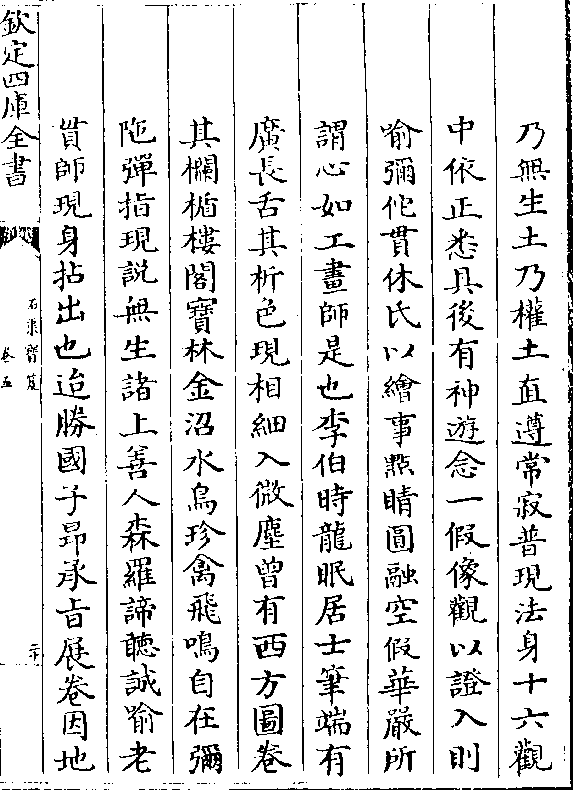 乃無生土乃權土直遵常寂普現法身十六觀
中依正悉具後有神遊念一假像觀以證入則
喻彌佗貫休氏以繪事㸃睛圓融空假華嚴所
謂心如工畫師是也李伯時龍眠居士筆端有
廣長舌其析色現相細入微塵曾有西方圖卷
其欄楯樓閣寶林金沼水鳥珍禽飛鳴自在彌
陁彈指現說無生諸上善人森羅諦聽誠喻老
貫師現身拈出也迨勝國子昻承旨展卷因地
欽定四庫全書
石渠寶笈
卷五
二十